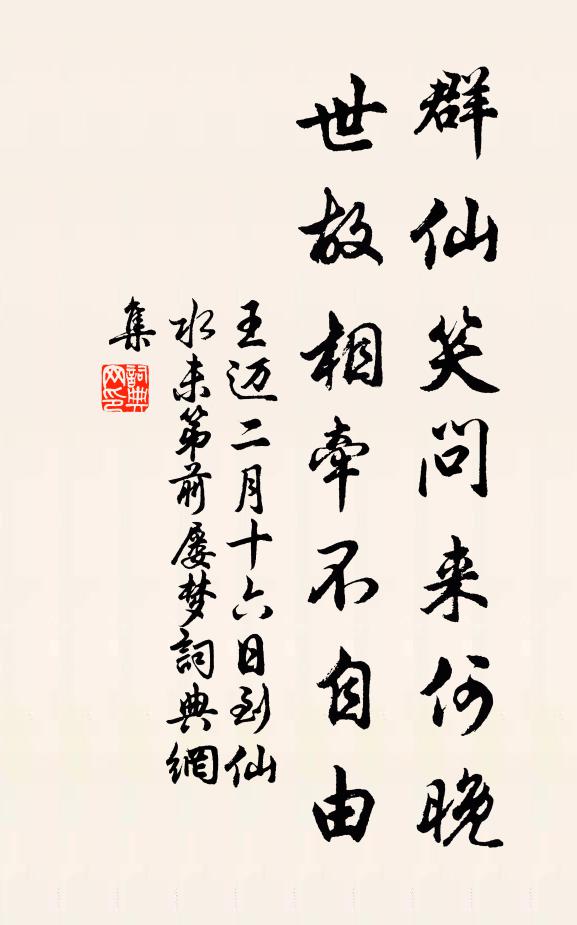 群仙笑問来何晚
世故相牽不自由
王迈二月十六日到仙
水未第前屡梦詞典網
集
詞典
网印